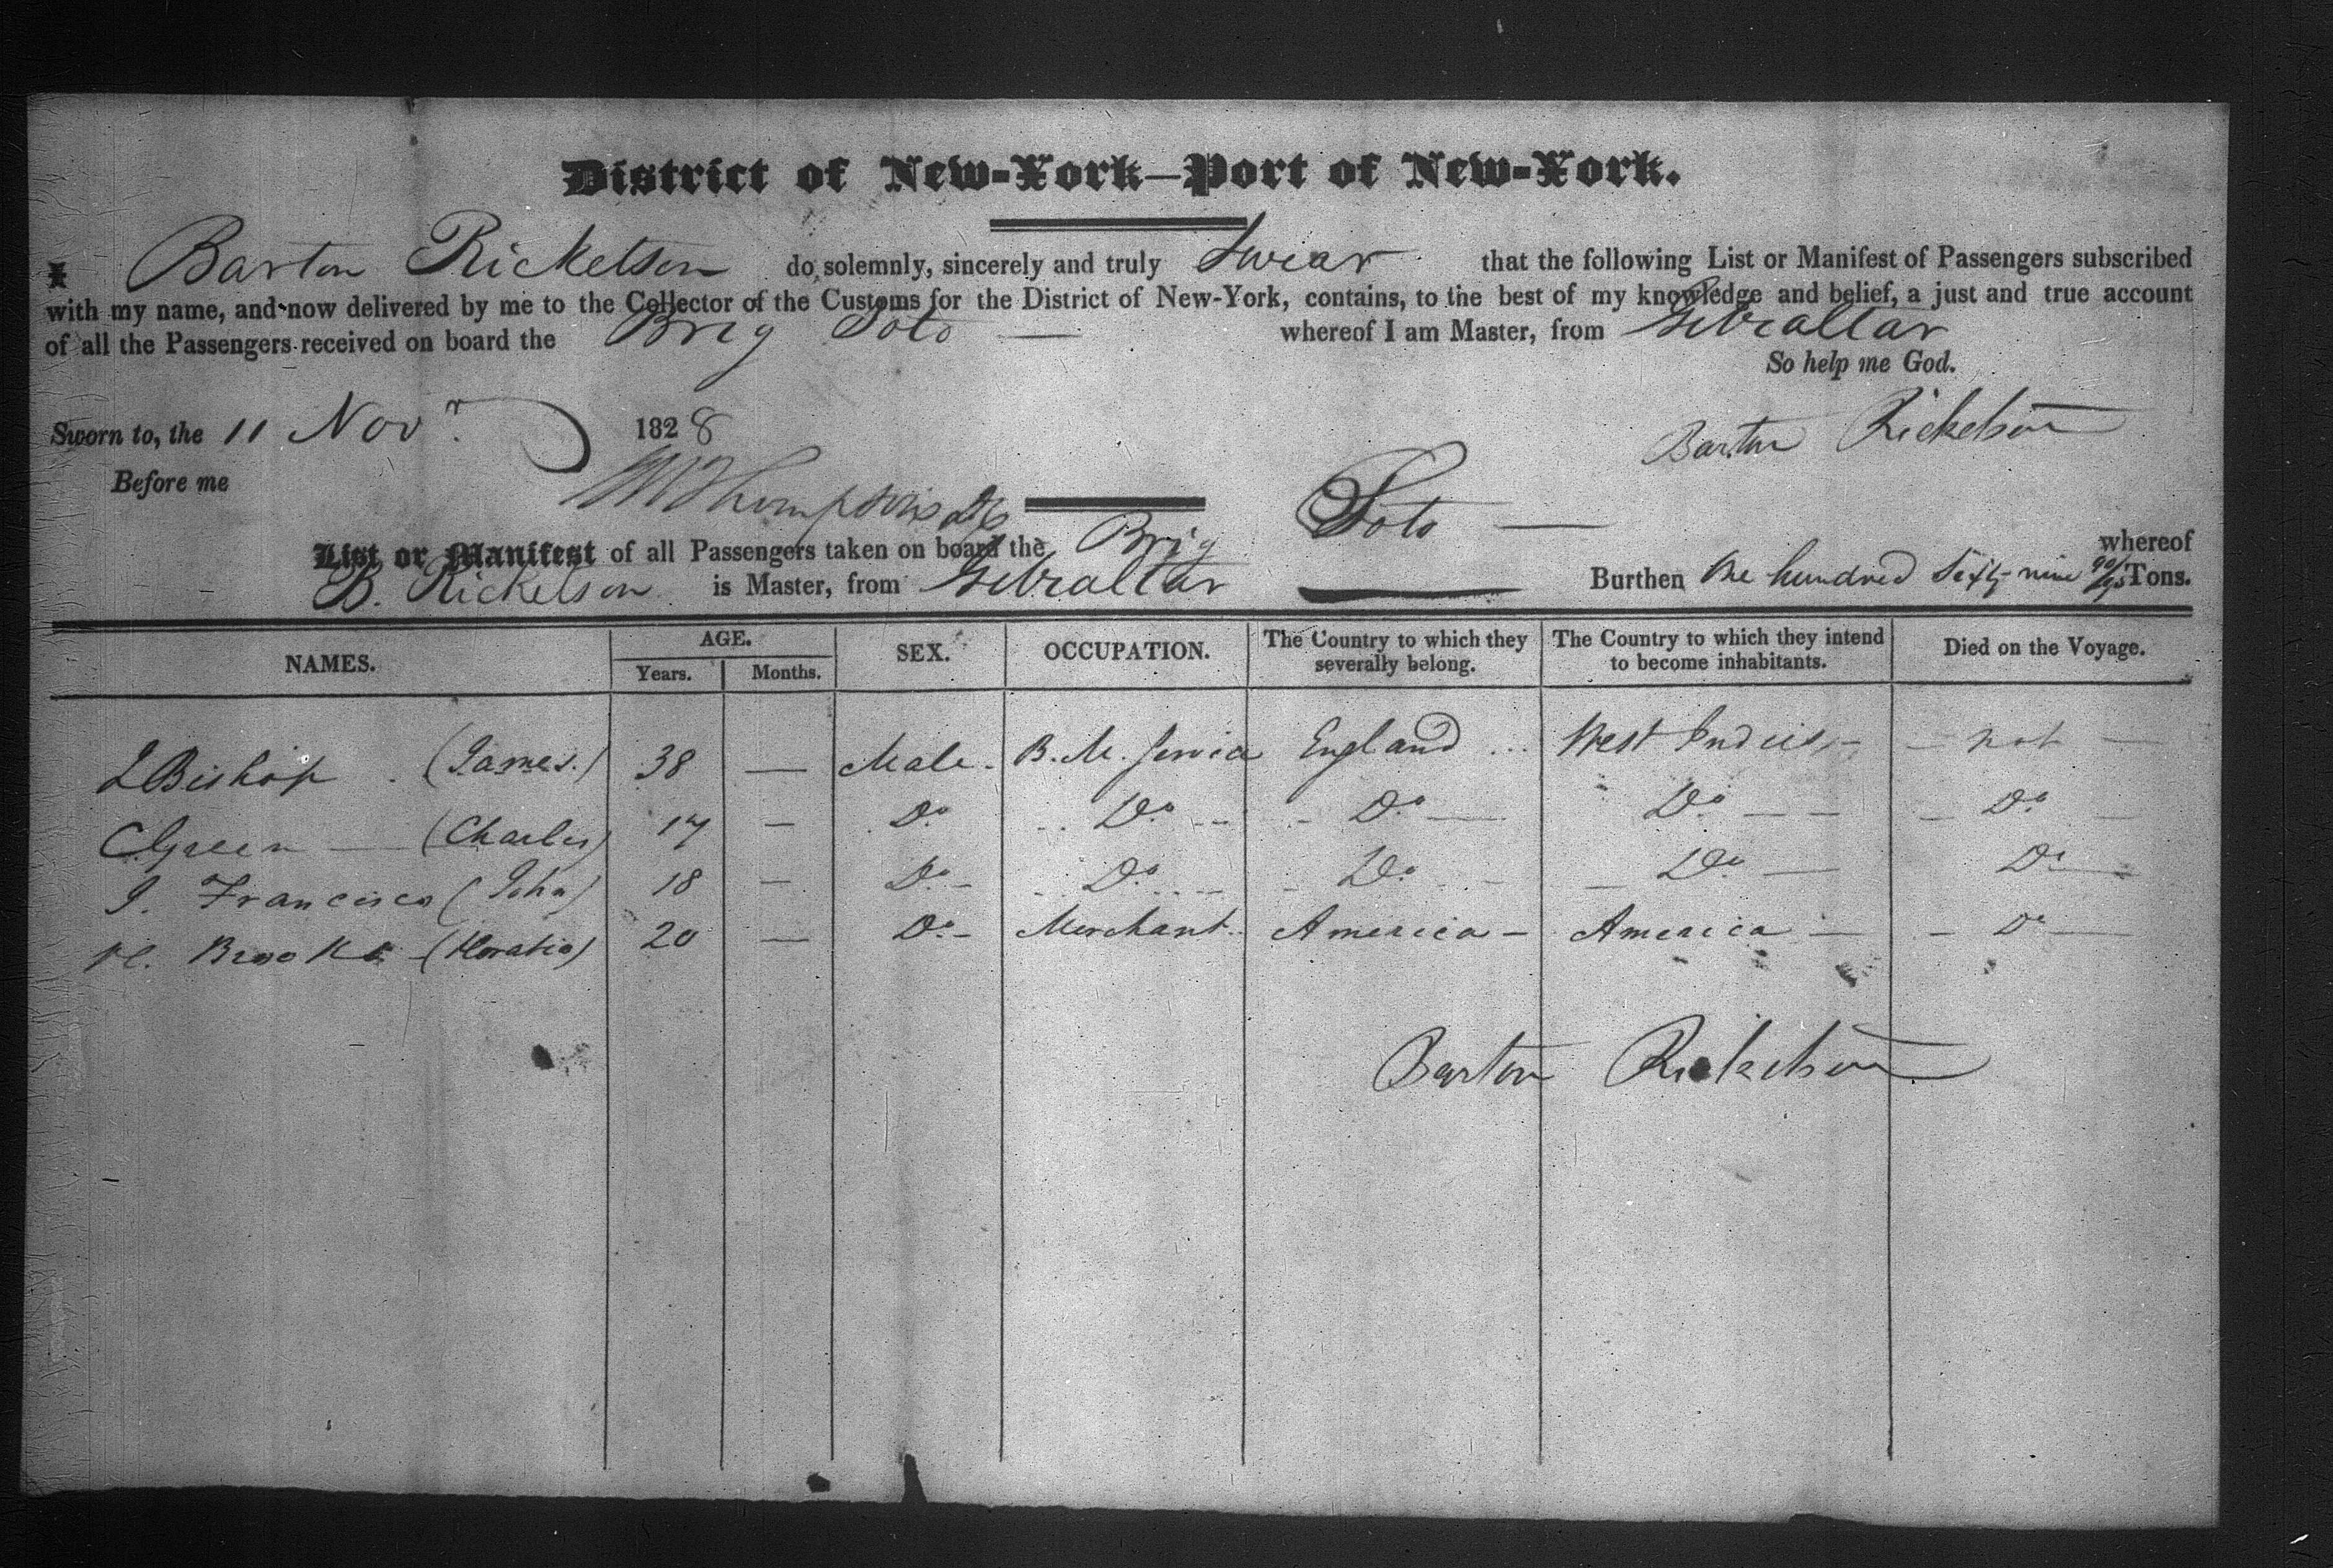 District of New-York—Port of New-York.
I Barton Ricketson do solemnly, sincerely and truly Swear that the following List or Manifest of Passengers subscribed
with my name, and now delivered by me to the Collector of the Customs for the District of New-York, contains, to the best of my knowledge and belief, a just and true account
of all the Passengers received on board the Brig Soto — whereof I am Master, from Gibraltar
So help me God.
Sworn to, the 11 Novr. 1828 Barton Ricketson
Before me
Thompson
List or Manifest of all Passengers taken on board the Brig Soto — whereof
B. Ricketson is Master, from Gibraltar — Burthen One hundred Sixty-nine 90/95 Tons.
NAMES. AGE. SEX. OCCUPATION. The Country to which they severally belong. The Country to which they intend to become inhabitants. Died on the Voyage.
Years. Months.
J Bishop (James.) 38 — Male. B. M. Service England West Indies — not —
C Green — (Charles) 17 — Do Do Do — Do — Do —
J. Francisco (John) 18 — Do Do Do — Do — Do —
H. Brooks (Horatio) 20 — Do Merchant America — America — Do —
Barton Ricketson